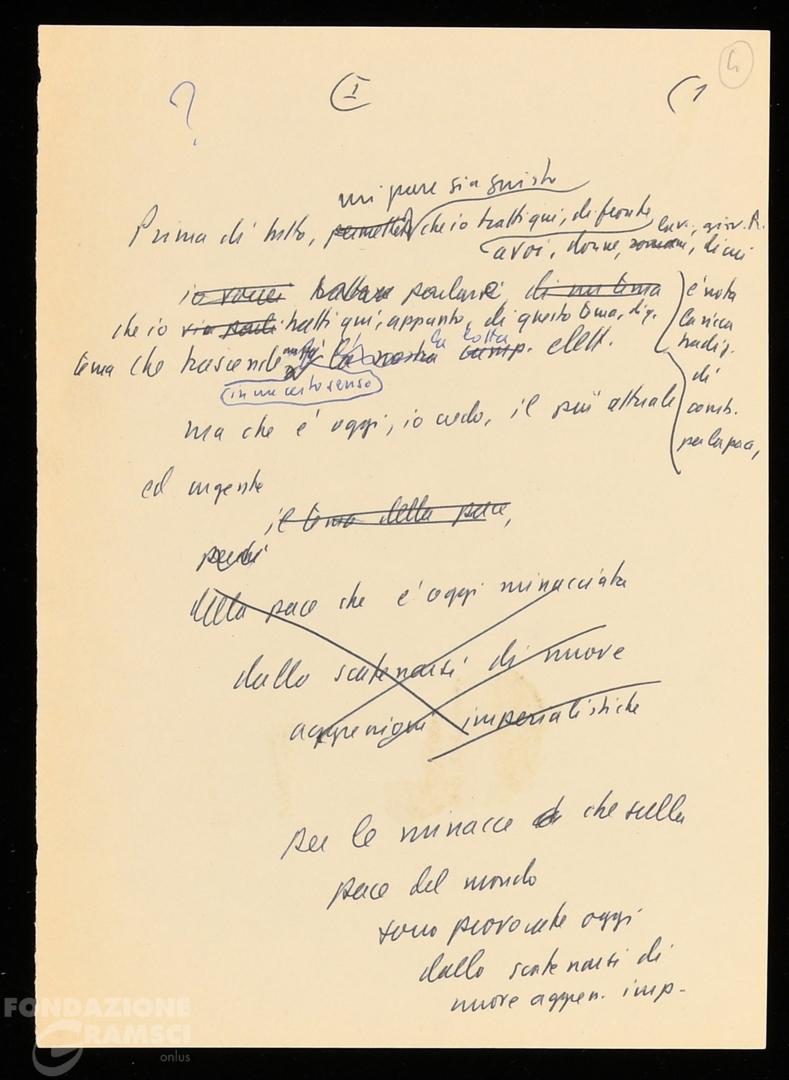 ?
(I
(1
4
mi pare sia giusto
Prima di tutto, permettete che io tratti qui, di fronte
a voi, donne, romani, di cui
io vorrei parlare di un tema
che io tratti qui, appunto, di questo tema, di q.
tema che trascende la nostra la lotta camp. elett.
in un certo senso
è nota
la ricca
tradiz.
di
comb.
per la pace,
ma che è oggi, io credo, il più attuale
ed urgente
il tema della pace,
perché
della pace che è oggi minacciata
dallo scatenarsi di nuove
aggressioni imperialistiche
per le minacce che sulla
pace del mondo
sono provocate oggi
dallo scatenarsi di
nuove aggress. imp.
FONDAZIONE
GRAMSCI
onlus